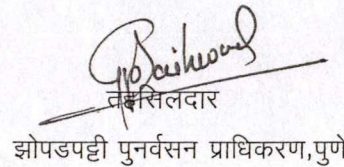 तहसिलदार
झोपडपट्टी पुनर्वसन प्राधिकरण,पुणे